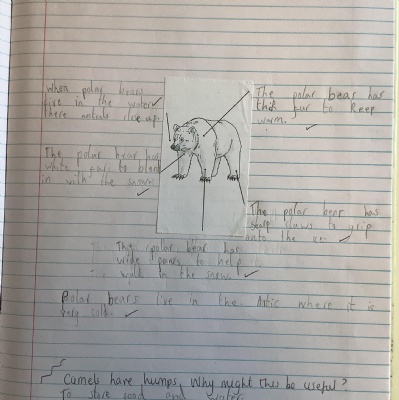 When polar bears
are in the water
there nostrils close up.
The polar bear has
thick fur to keep
warm.
The polar bear has
white fur to blend
in with the snow.
The polar bear has
sharp claws to grip
onto the ice.
The polar bear has
wide paws to help
walk in the snow.
Polar bears live in the Artic where it is
very cold.
Camels have humps. Why might this be useful?
To store food and water.